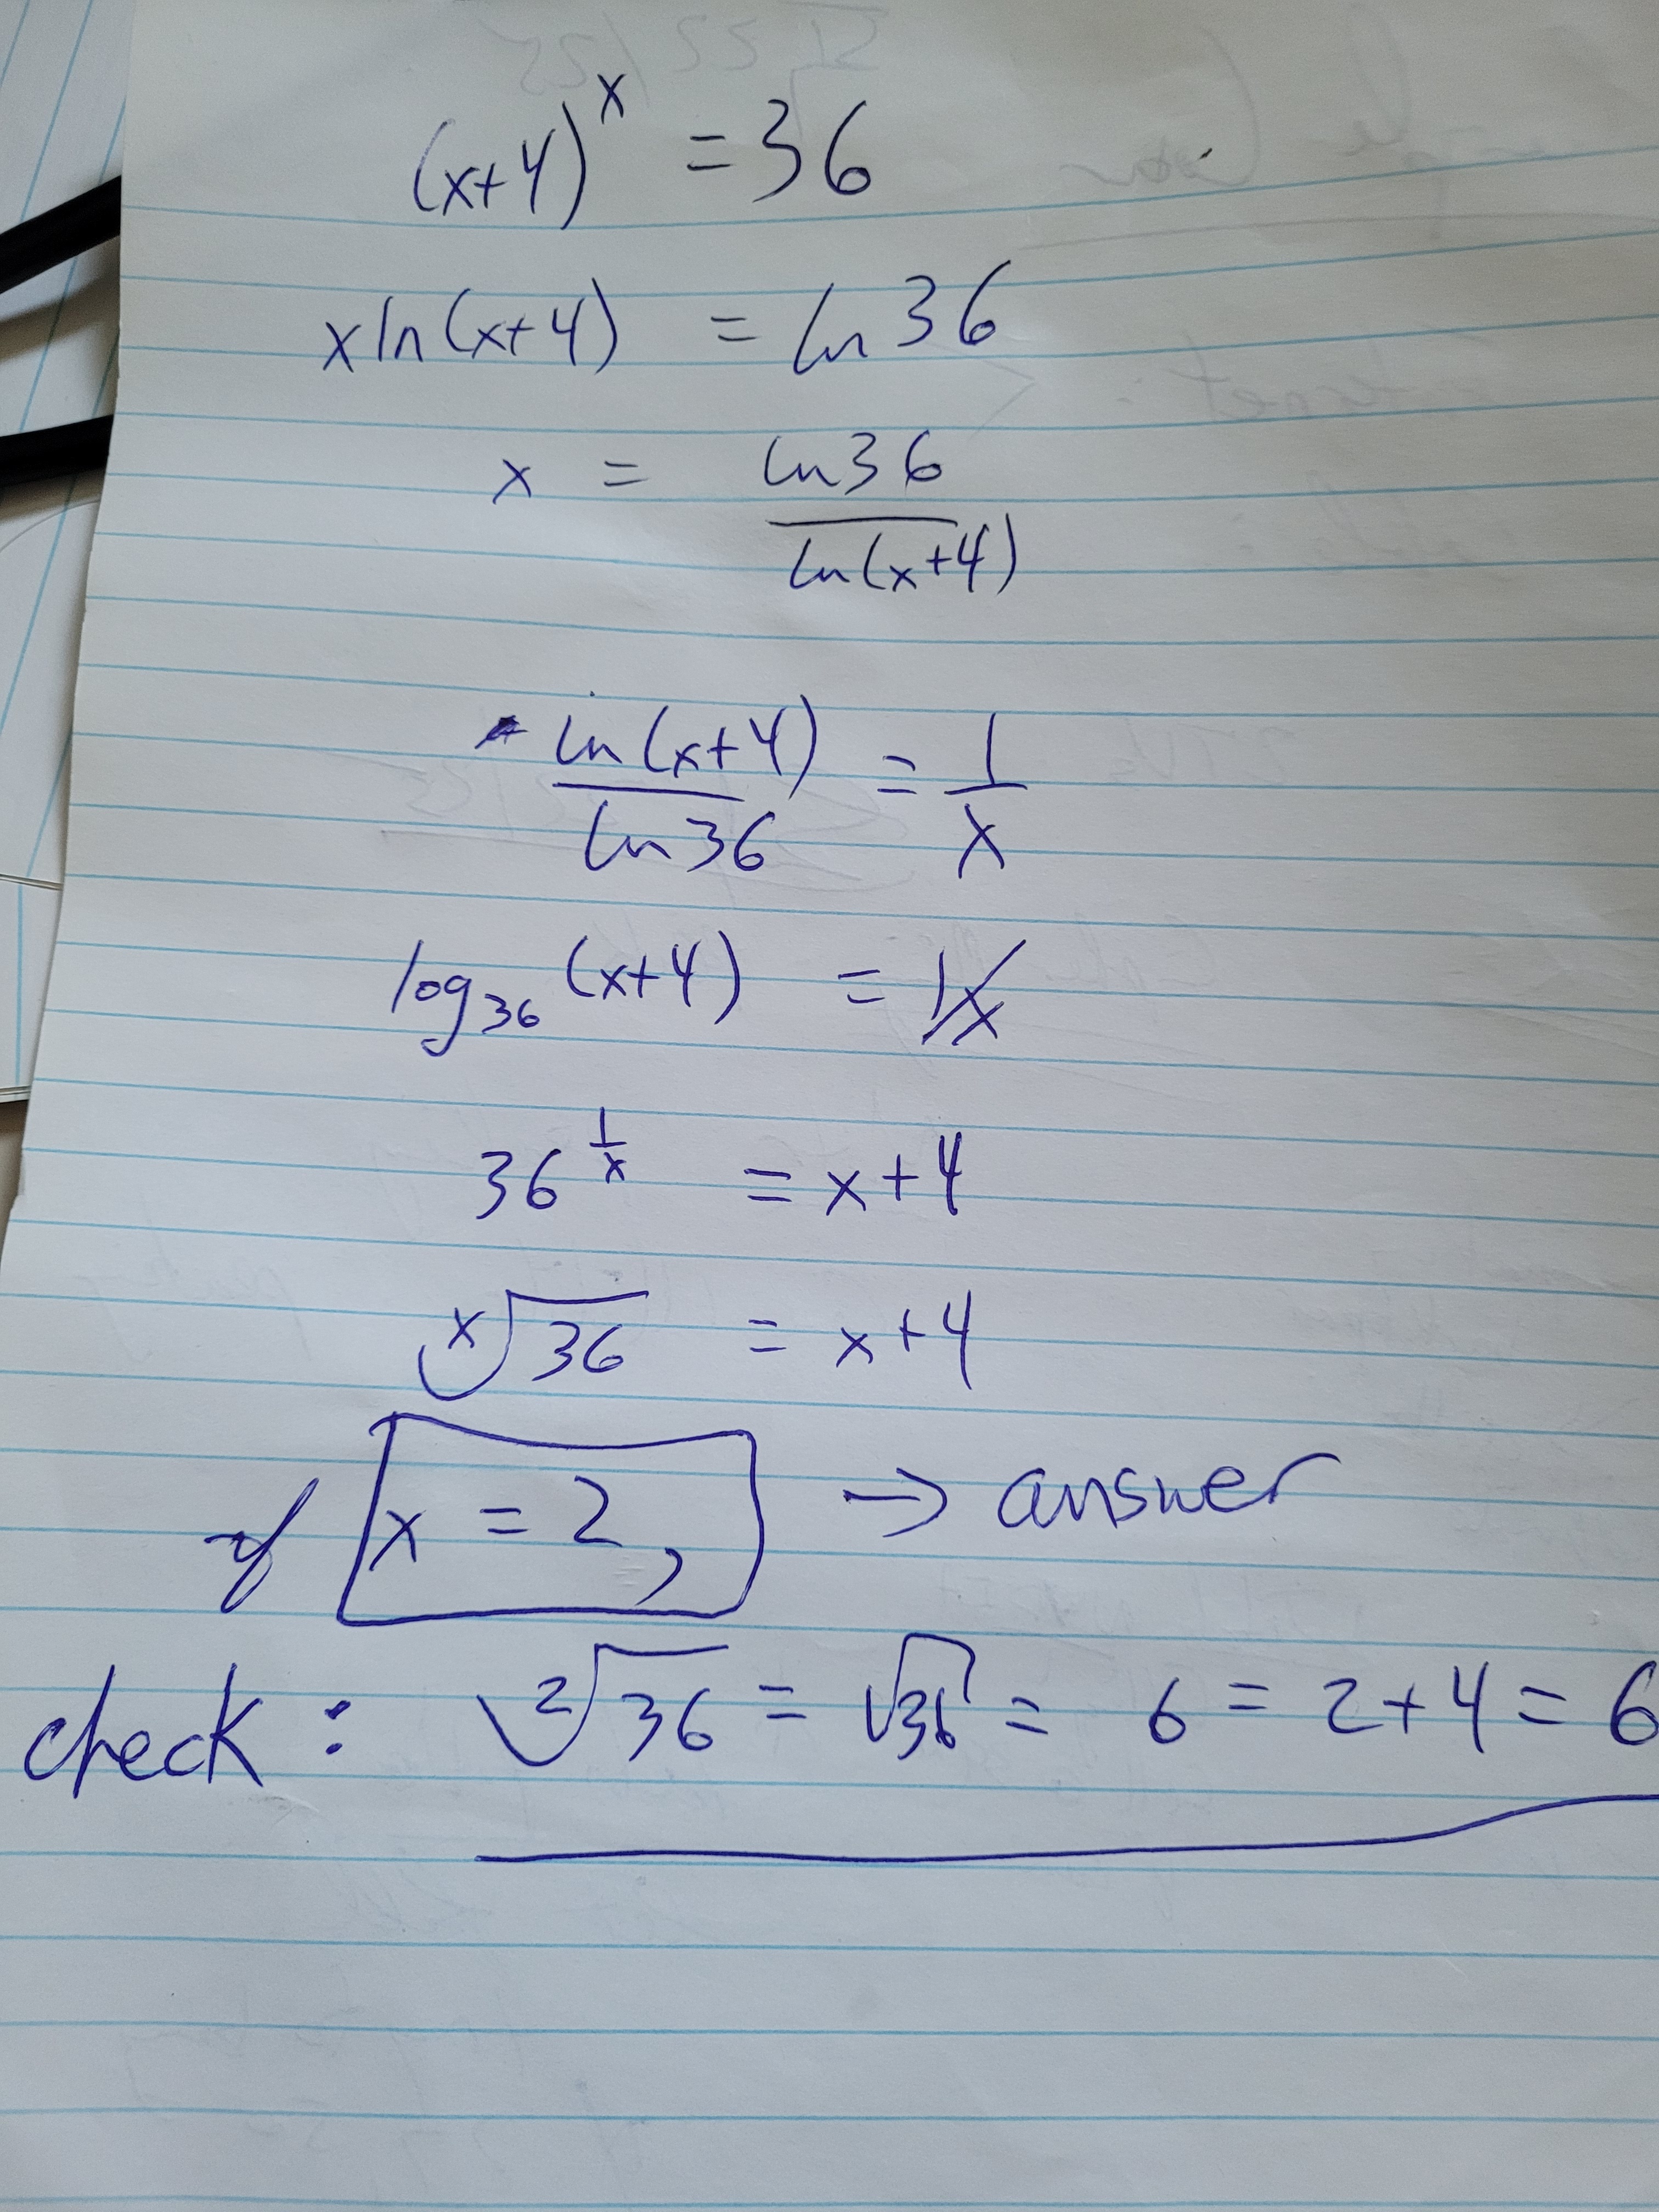 (x+4)^x = 36
x ln(x+4) = ln 36
x = ln 36 / ln(x+4)
ln(x+4) / ln 36 = 1/x
log_36 (x+4) = 1/x
36^(1/x) = x+4
x√36 = x+4
if x = 2, → answer
check: 2√36 = √36 = 6 = 2+4 = 6